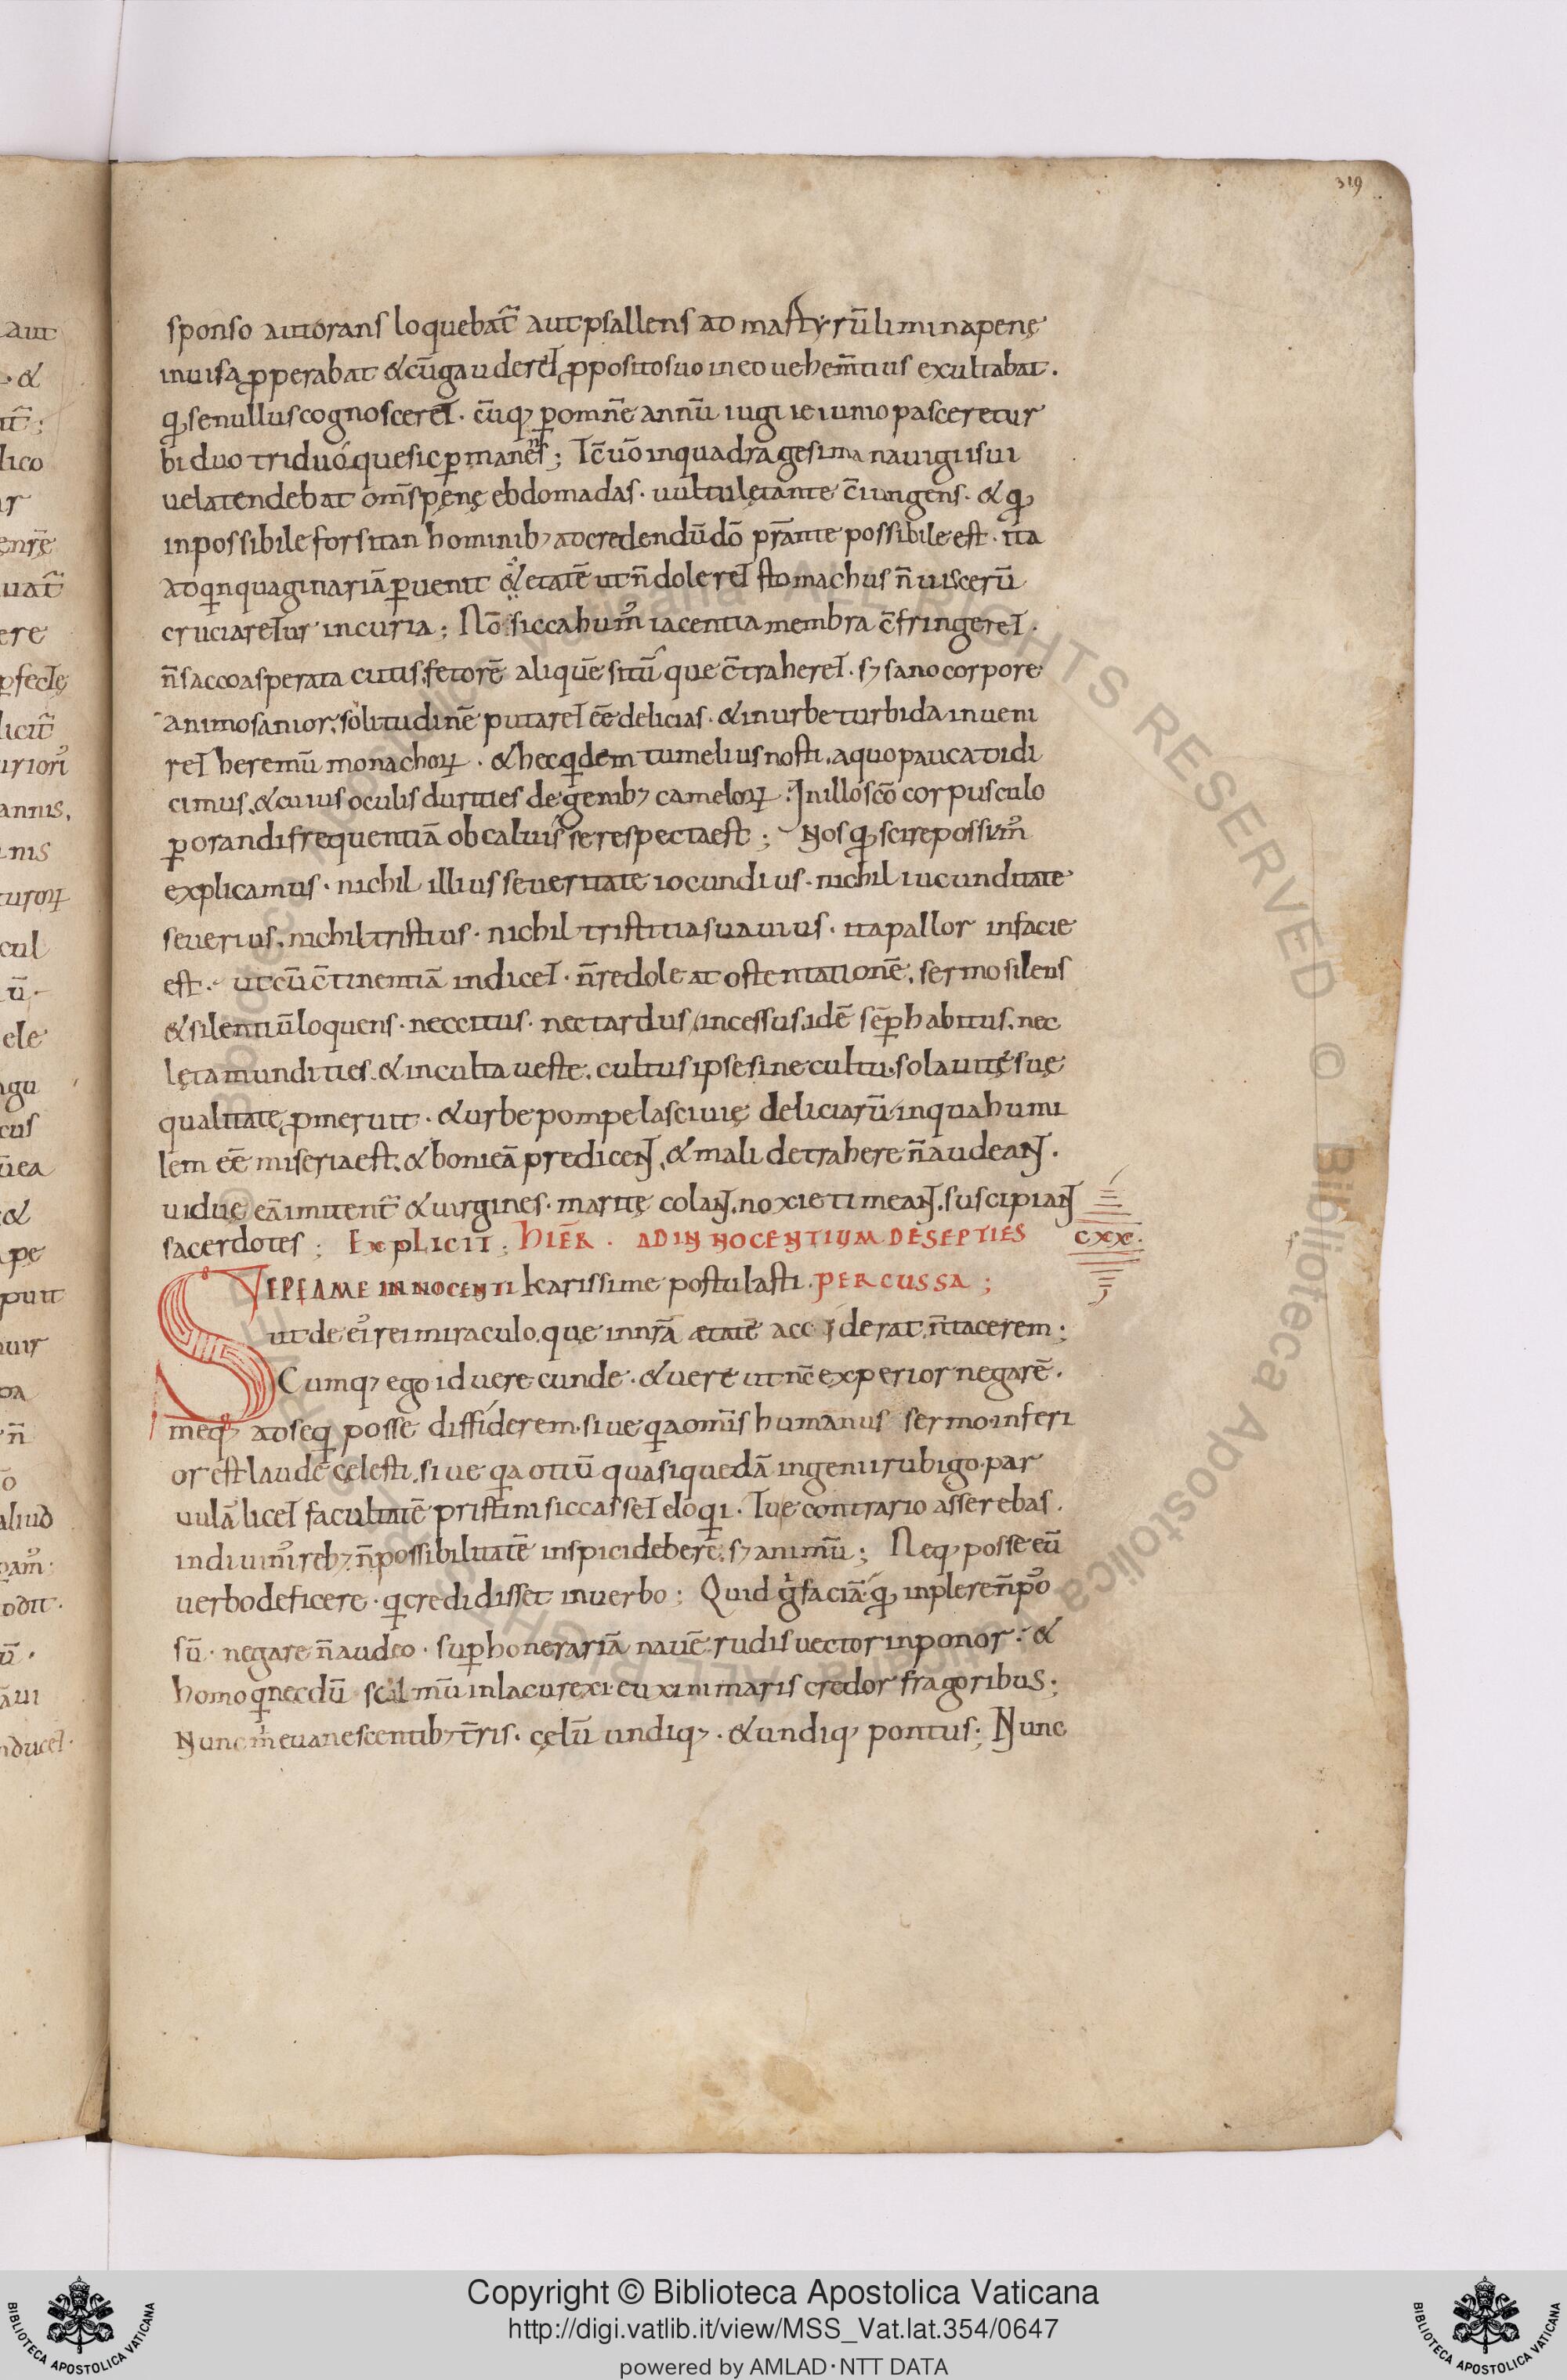 319
sponso aut orans loquebat̃ aut psallens ad martyrũ limina penę
inuisa ꝓperabat & cũ gauderet ꝓposito suo in eo uehem̃tius exultabat.
qđ se nullus cognosceret. cũq; ꝑ omnẽ annũ iugi ieiunio pasceretur
biduo triduóque sic ꝑmanens; Tc̃ uõ in quadragesima nauigii sui
uela tendebat om̃s penę ebdomadas. uultu lętante c̃iungens. & qđ
inpossibile forsitan hominib; ad credendũ dõ pr̃ante possibile est. ita
ad qinquaginariã ꝑuenit etatẽ ut ñ doleret stomachus ñ uiscerũ
cruciaretur incuria; Nõ sicca hum᷒ iacentia membra c̃fringeret.
ñ sacco asperata cutis. fetorẽ aliquẽ sitũque c̃traheret. s; sano corpore
animo sanior. solitudinẽ putaret eẽ delicias. & in urbe turbida inueni
ret heremũ monachoꝝ. & hec qidem tu melius nosti. a quo pauca didi
cimus. & cuius oculis durities de genib; cameloꝝ. In illo sc̃o corpusculo
ꝑ orandi frequentiã obcaluisse respecta est; Nos qđ scire possum᷒
explicamus. nichil illius seueritate iocundius. nichil iucunditate
seuerius. nichil tristius. nichil tristitia suauius. ita pallor in facie
est. ut cũ c̃tinentiã indicet. ñ redoleat ostentationẽ. sermo silens
& silentiũ loquens. nec citus. nec tardus incessus. idẽ sẽꝑ habitus. nec
lęta mundities. & inculta ueste. cultus ipse sine cultu. sola uitę suę
qualitate ꝓmeruit. & urbe pompe lasciuię deliciarũ in qua humi
lem eẽ miseria est. & boni eã predicent. & mali detrahere ñ audeant.
uiduę eã imitent̃ & uirgines. maritę colant. noxie timeant. suscipiant
sacerdotes; Explicit; HIER̃. AD INNOCENTIUM DE SEPTIES
CXX.
SEPE A ME INNOCENTI karissime postulasti. PERCUSSA;
ut de ei᷒ rei miraculo. que in nr̃ã ætatẽ acciderat. ñ tacerem;
Cumq; ego id uerecunde. & uere ut nc̃ experior negarẽ.
meq; adseqi posse diffiderem. siue qia om̃is humanus sermo inferi
or est laude cęlesti. siue qa otiũ quasi quedã ingenii rubigo. par
uulã licet facultatẽ pristini siccasset eloqi. Tu e contrario asserebas.
in diuinis reb; ñ possibilitatẽ inspici deberẽ. s; animũ; Neq; posse eũ
uerbo deficere. qi credidisset in uerbo; Quid g̊ faciã. qđ inplere ñ po
sũ. negare ñ audeo. suꝑ honerariã nauẽ rudis uector inponor. &
homo qi necdũ scalmũ in lacu rexi. euxini maris credor fragoribus;
Nunc m̃ euanescentib; t̃ris. cęlũ undiq;. & undiq; pontus; Nunc
Copyright © Biblioteca Apostolica Vaticana
http://digi.vatlib.it/view/MSS_Vat.lat.354/0647
powered by AMLAD·NTT DATA